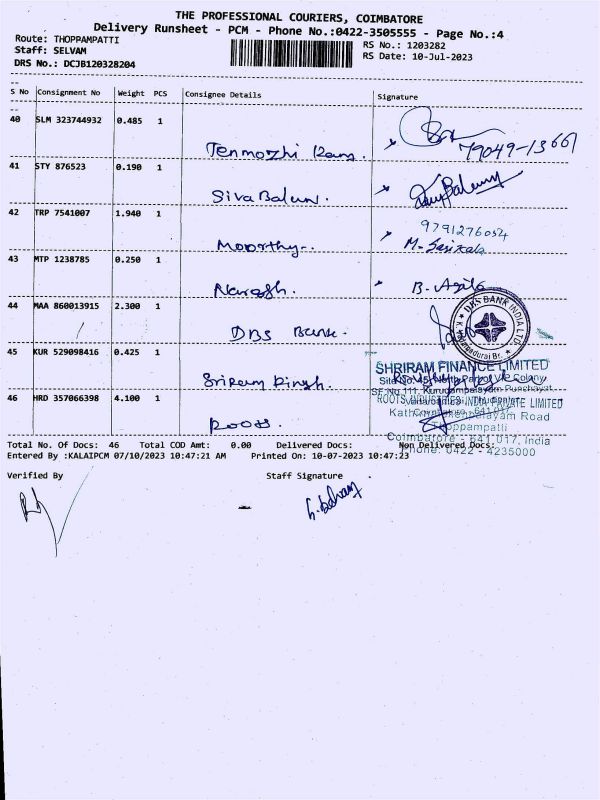 THE PROFESSIONAL COURIERS, COIMBATORE
Delivery Runsheet - PCM - Phone No.:0422-3505555 - Page No.:4
Route: THOPPAMPATTI
Staff: SELVAM
DRS No.: DCJB120328204
RS No.: 1203282
RS Date: 10-Jul-2023
S No Consignment No Weight PCS Consignee Details Signature
40 SLM 323744932 0.485 1
Tenmozhi 79049-13661
41 STY 876523 0.190 1
Siva Balan.
42 TRP 7541007 1.940 1
9791276054
Moorthy. M. Sasikala
43 MTP 1238785 0.250 1
Naresh. B.
44 MAA 860013915 2.300 1
DBS Bank. DBS BANK INDIA LTD.
45 KUR 529098416 0.425 1
SHRIRAM FINANCE LIMITED
Sriram
46 HRD 357066398 4.100 1
ROOTS INDUSTRIES INDIA PRIVATE LIMITED
Roots. Thoppampatti
Total No. Of Docs: 46 Total COD Amt: 0.00 Delivered Docs: Non Delivered Docs:
Coimbatore - 641 017, India
Entered By :KALAIPCM 07/10/2023 10:47:21 AM Printed On: 10-07-2023 10:47:23
Phone: 0422 - 4235000
Verified By Staff Signature